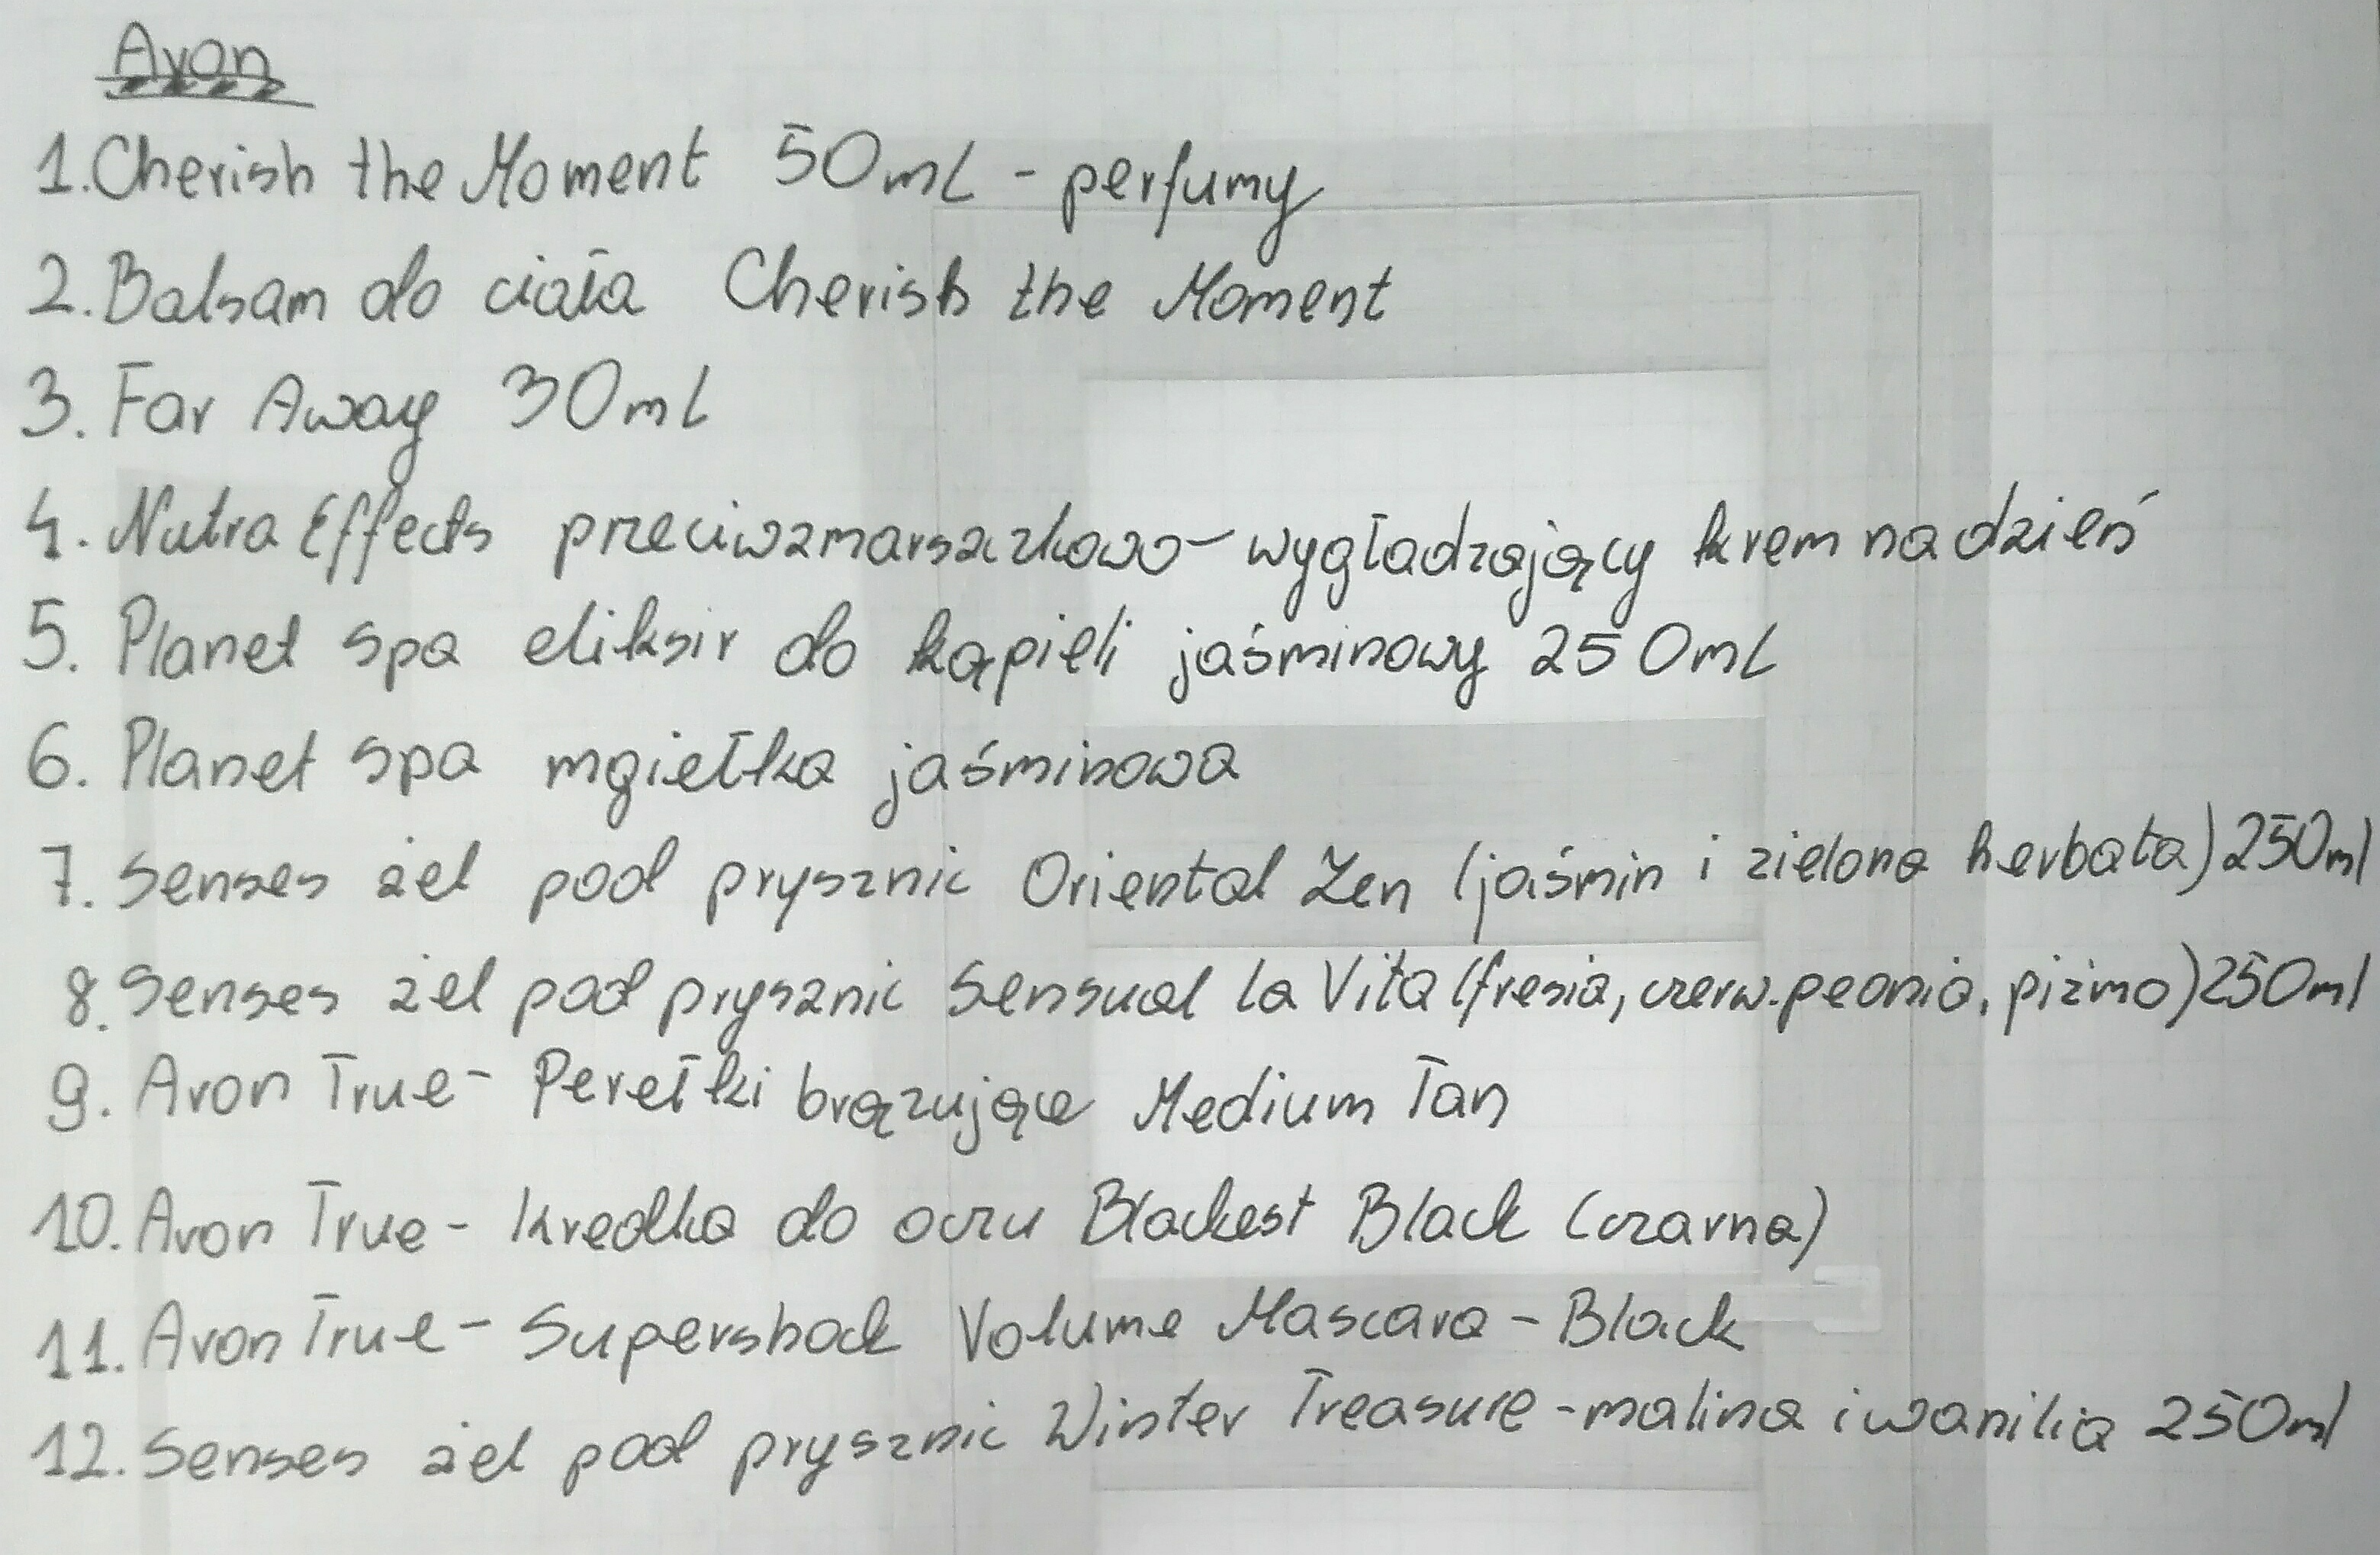 Avon
1. Cherish the Moment 50ml - perfumy
2. Balsam do ciała Cherish the Moment
3. Far Away 30ml
4. Nutra Effects przeciwzmarszczkowo-wygładzający krem na dzień
5. Planet spa eliksir do kąpieli jaśminowy 250ml
6. Planet spa mgiełka jaśminowa
7. Senses żel pod prysznic Oriental Zen (jaśmin i zielona herbata) 250ml
8. Senses żel pod prysznic Sensual la Vita (fresia, czerw. peonia, piżmo) 250ml
9. Avon True - Perełki brązujące Medium Tan
10. Avon True - kredka do oczu Blackest Black (czarna)
11. Avon True - Supershock Volume Mascara - Black
12. Senses żel pod prysznic Winter Treasure - malina i wanilia 250ml